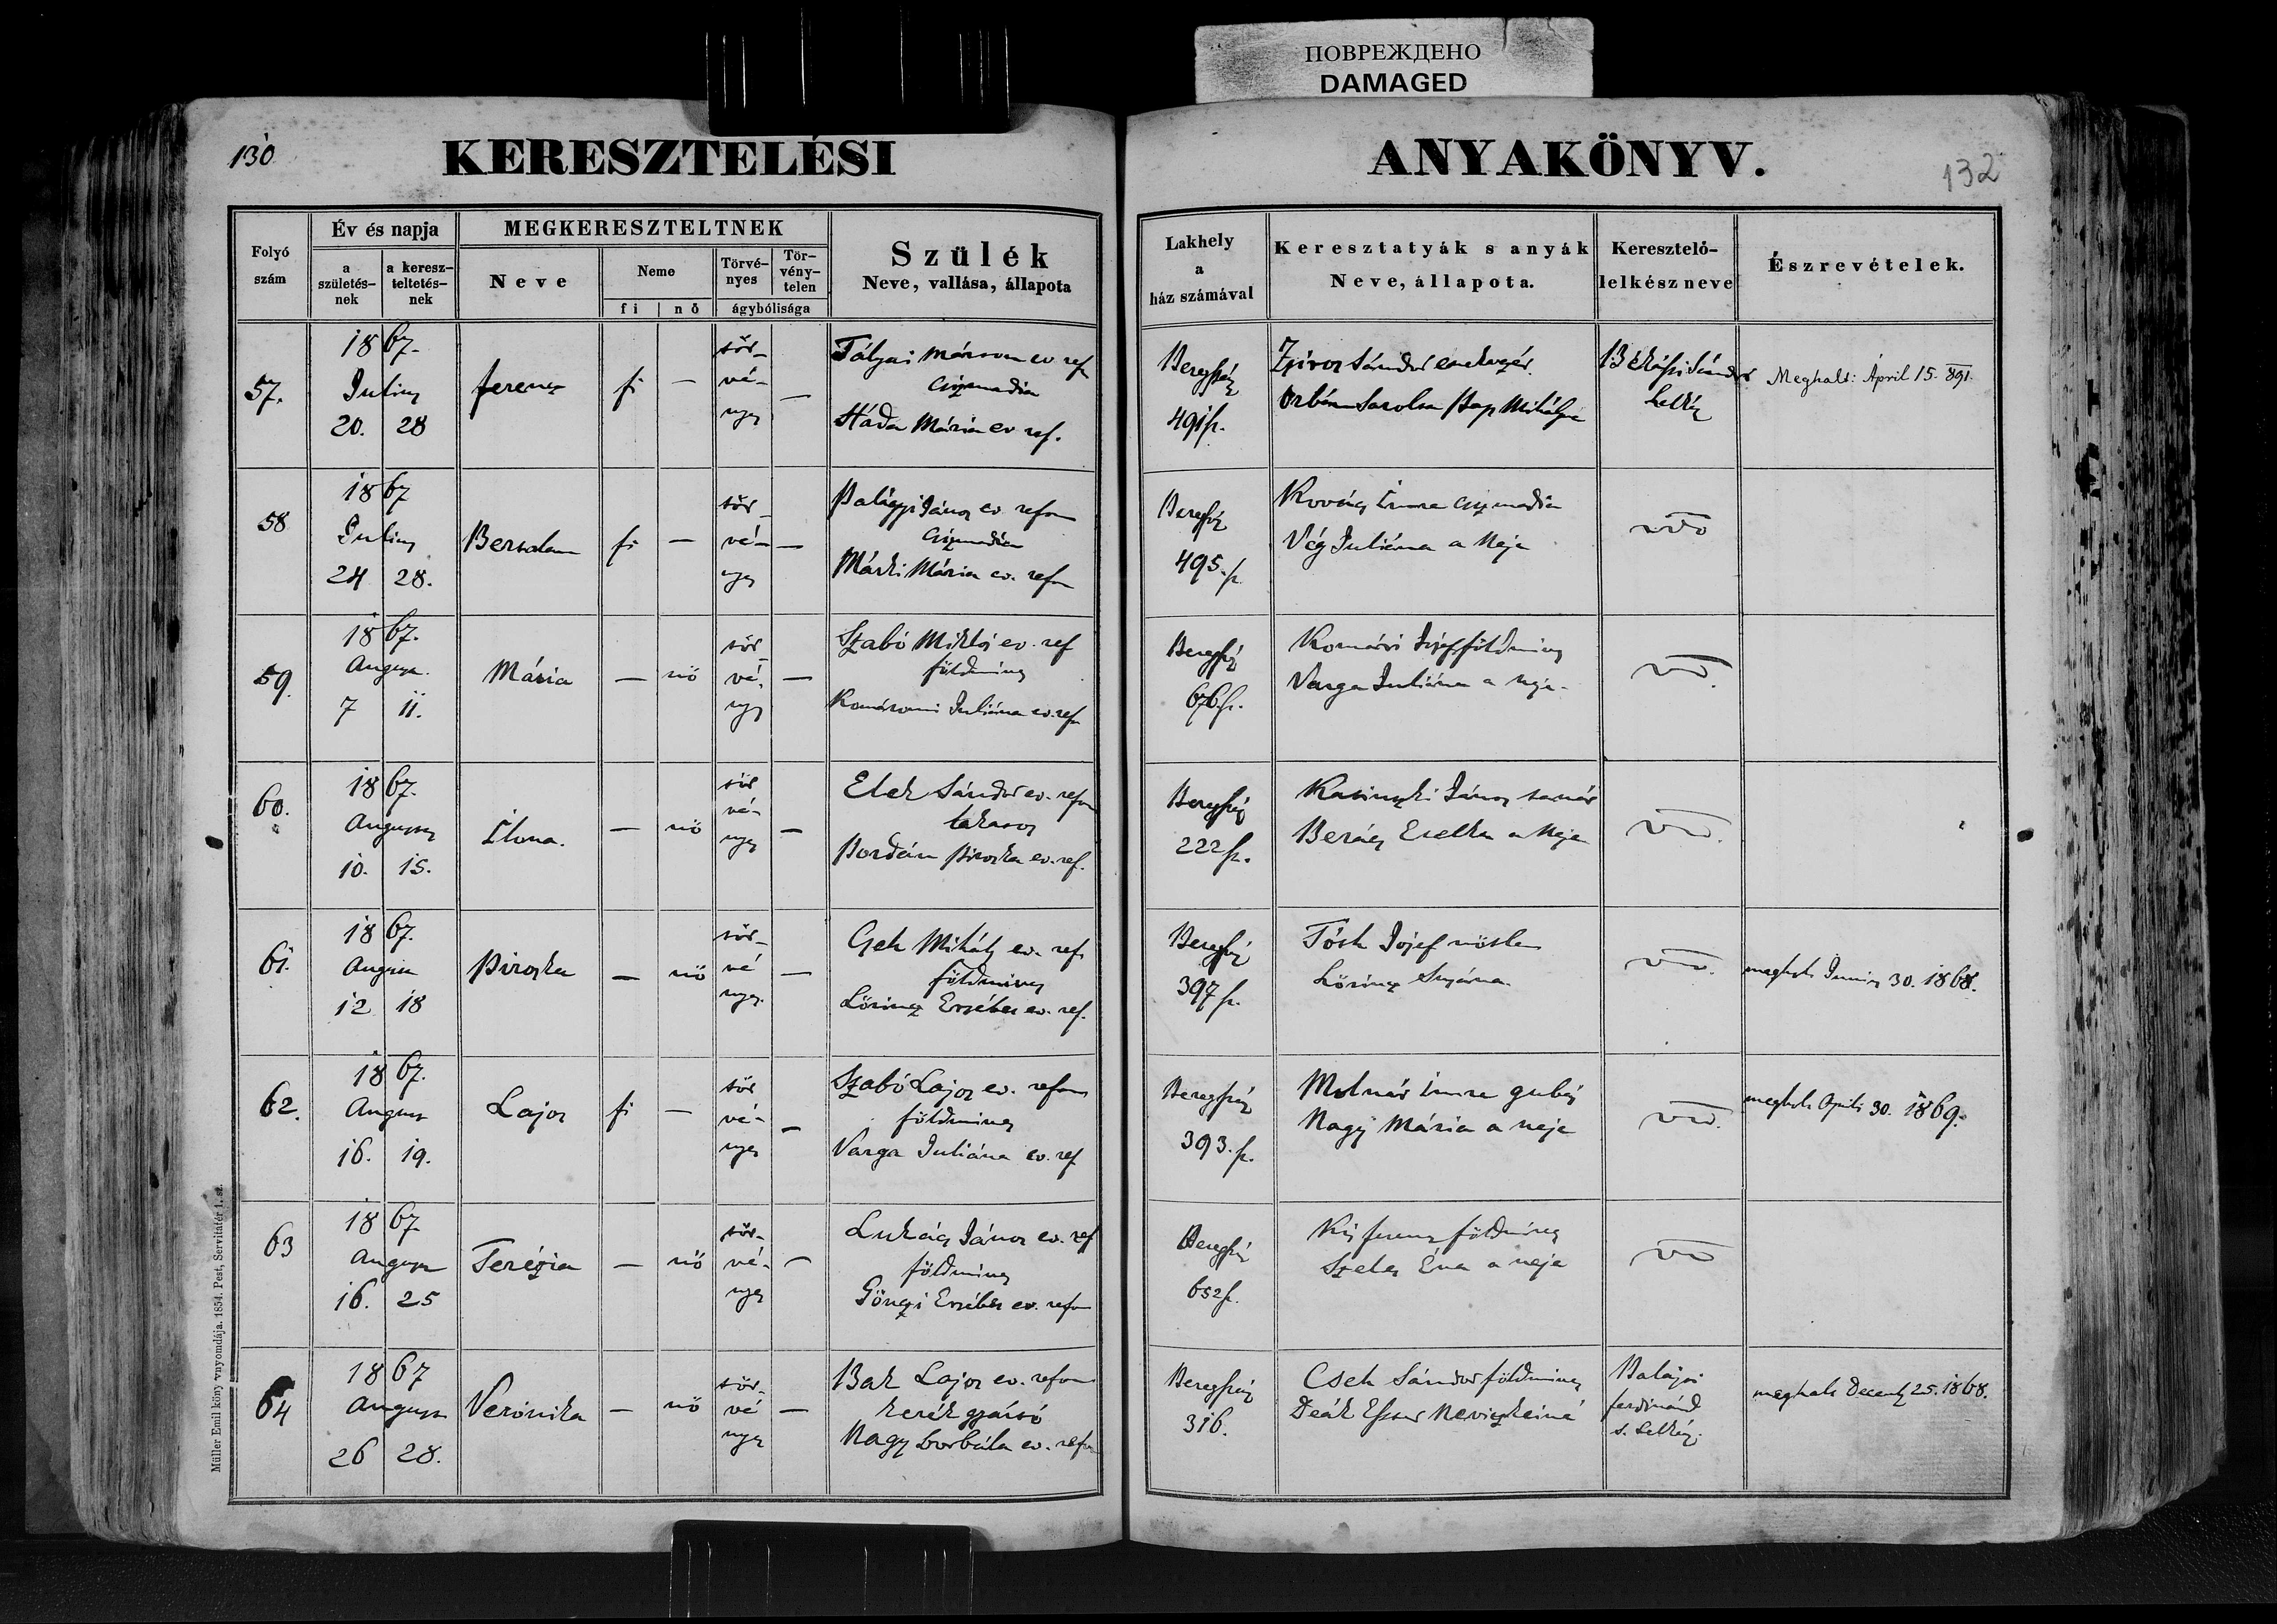 ПОВРЕЖДЕНО
DAMAGED
130
KERESZTELÉSI
ANYAKÖNYV.
132
Folyó szám
Év és napja
a születés-nek
a keresz-teltetés-nek
MEGKERESZTELTNEK
Neve
Neme
fi
nő
Törvé-nyes
Tör-vény-telen
ágybólisága
Szülék
Neve, vallása, állapota
Lakhely
a
ház számával
Keresztatyák s anyák
Neve, állapota.
Keresztelő-
lelkész neve
Észrevételek.
57.
1867.
Julius
20. 28
ferencz
fi —
tör-
vé-
nyes
—
Tályai Márton ev ref
Csizmadia
Háda Mária ev ref.
Beregszász
491 sz.
Sándor
Orbán Sarolta Pap Mihályné
Békássi Sándor
Lelkész
Meghalt: April 15. 891.
58
1867
Julius
24 28.
Bertalan
fi —
tör-
vé-
nyes
—
Palágyi János ev. refor
Csizmadia
Márki Mária ev. refor
Beregszász
495. sz.
Kovács Imre Csizmadia
Vég Juliána a Neje
59.
1867.
August.
7 11.
Mária
— nő
tör-
vé-
nyes
—
Szabó Miklós ev. ref
földmives
Komáromi Juliána ev. refor
Beregszász
676 sz.
József földmives
Varga Juliána a neje.
60.
1867.
Augustus
10. 15.
Ilona.
— nő
tör
vé-
nyes
—
Elek Sándor ev. refor
takacs
Bordán Piroska ev. ref.
Beregszász
222 sz.
János tanár
Etelka a Neje
61.
1867.
August
12 18
Piroska
— nő
tör-
vé
nyes.
—
Cseh Mihály ev. ref.
földmives
Lőrincz Erzsébet ev. ref.
Beregszász
397 sz.
Tóth Jósef nőtlen
Lőrincz Susána
meghalt Junius 30. 1868.
62.
1867.
August
16. 19.
Lajos
fi —
tör
vé-
nyes
—
Szabó Lajos ev. refor
földmives
Varga Juliána ev. ref
Beregszász
393. sz.
Molnár Imre gubás
Nagy Mária a neje
meghalt April 30. 1869.
63
1867
August
16. 25
Terézia
— nő
tör-
vé-
nyes
—
Lukács János ev. ref
földmives
Göngzi Erzsébet ev. refor
Beregszász
652 sz.
Kis ferencz földmives
Szeles Éva a neje
64
1867
August
26 28.
Verónika
— nő
tör-
vé
nyes
—
Bak Lajos ev. refor
kerék gyártó
Nagy borbála ev. refor
Beregszász
316.
Cseh Sándor földmives
Deák Eszter Neviczkeiné
Balajti
ferdinánd
s. Lelkész.
meghalt Decemb 25. 1868.
Müller Emil könyvnyomdája. 1854. Pest, Servitatér 1. sz.